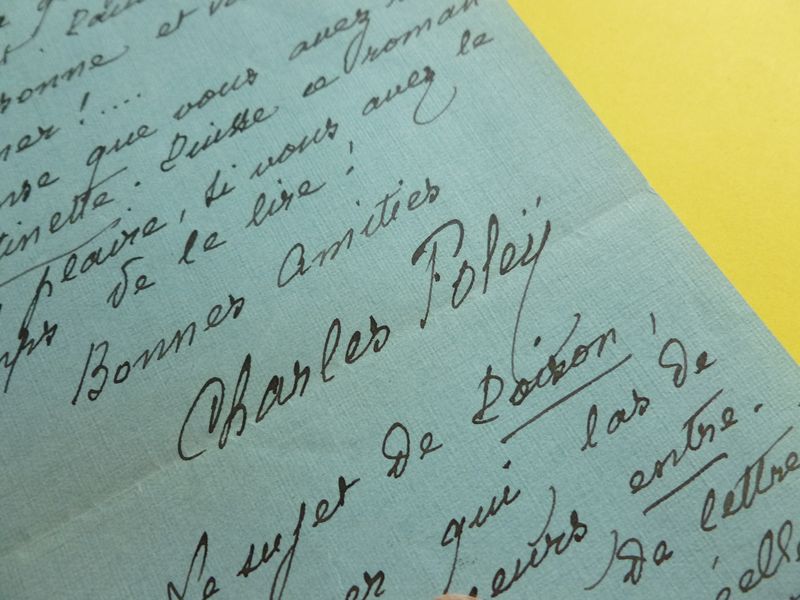 sonne et vous
ner !....
que vous avez
tinette. Puisse ce roman
plaire, si vous avez le
de le lire !
Bonnes amitiés
Charles Foleÿ
Le sujet de Poison,
qui, las de
entre.
de lettre